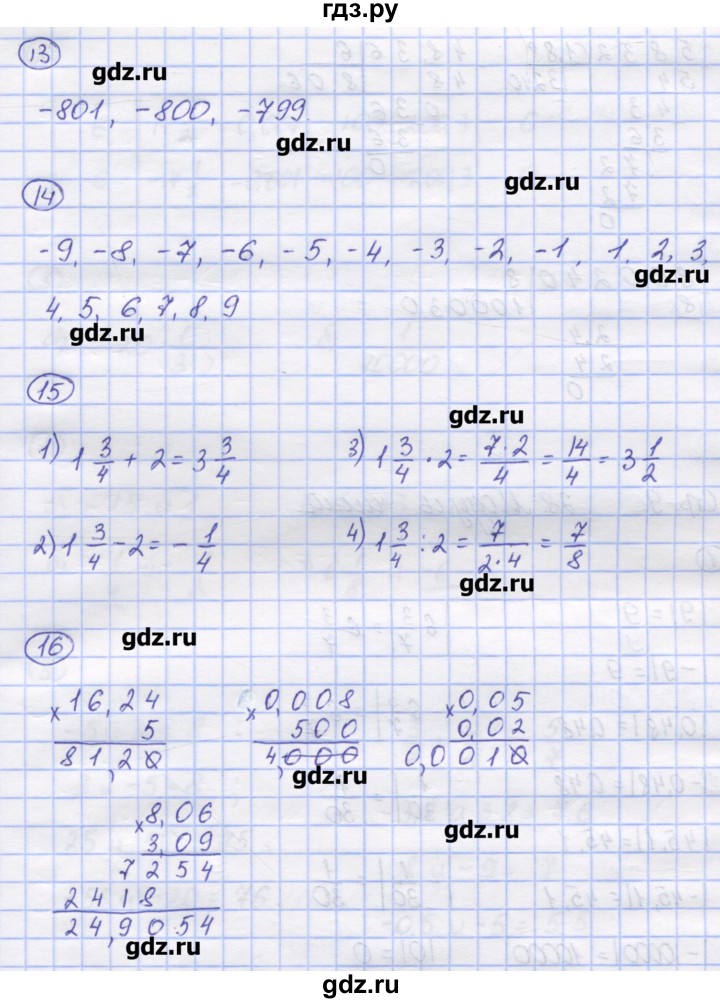 гдз.ру
13
gdz.ru
-801, -800, -799.
gdz.ru
14
gdz.ru
-9, -8, -7, -6, -5, -4, -3, -2, -1, 1, 2, 3,
gdz.ru
4, 5, 6, 7, 8, 9
gdz.ru
15
gdz.ru
1) 1 3/4 + 2 = 3 3/4
3) 1 3/4 · 2 = 7·2/4 = 14/4 = 3 1/2
2) 1 3/4 - 2 = - 1/4
4) 1 3/4 : 2 = 7/2·4 = 7/8
gdz.ru
16
gdz.ru
× 16,24
5
81,20
× 0,008
500
4,000
× 0,05
0,02
0,0010
gdz.ru
× 8,06
3,09
7254
2418
24,9054
gdz.ru
gdz.ru
gdz.ru